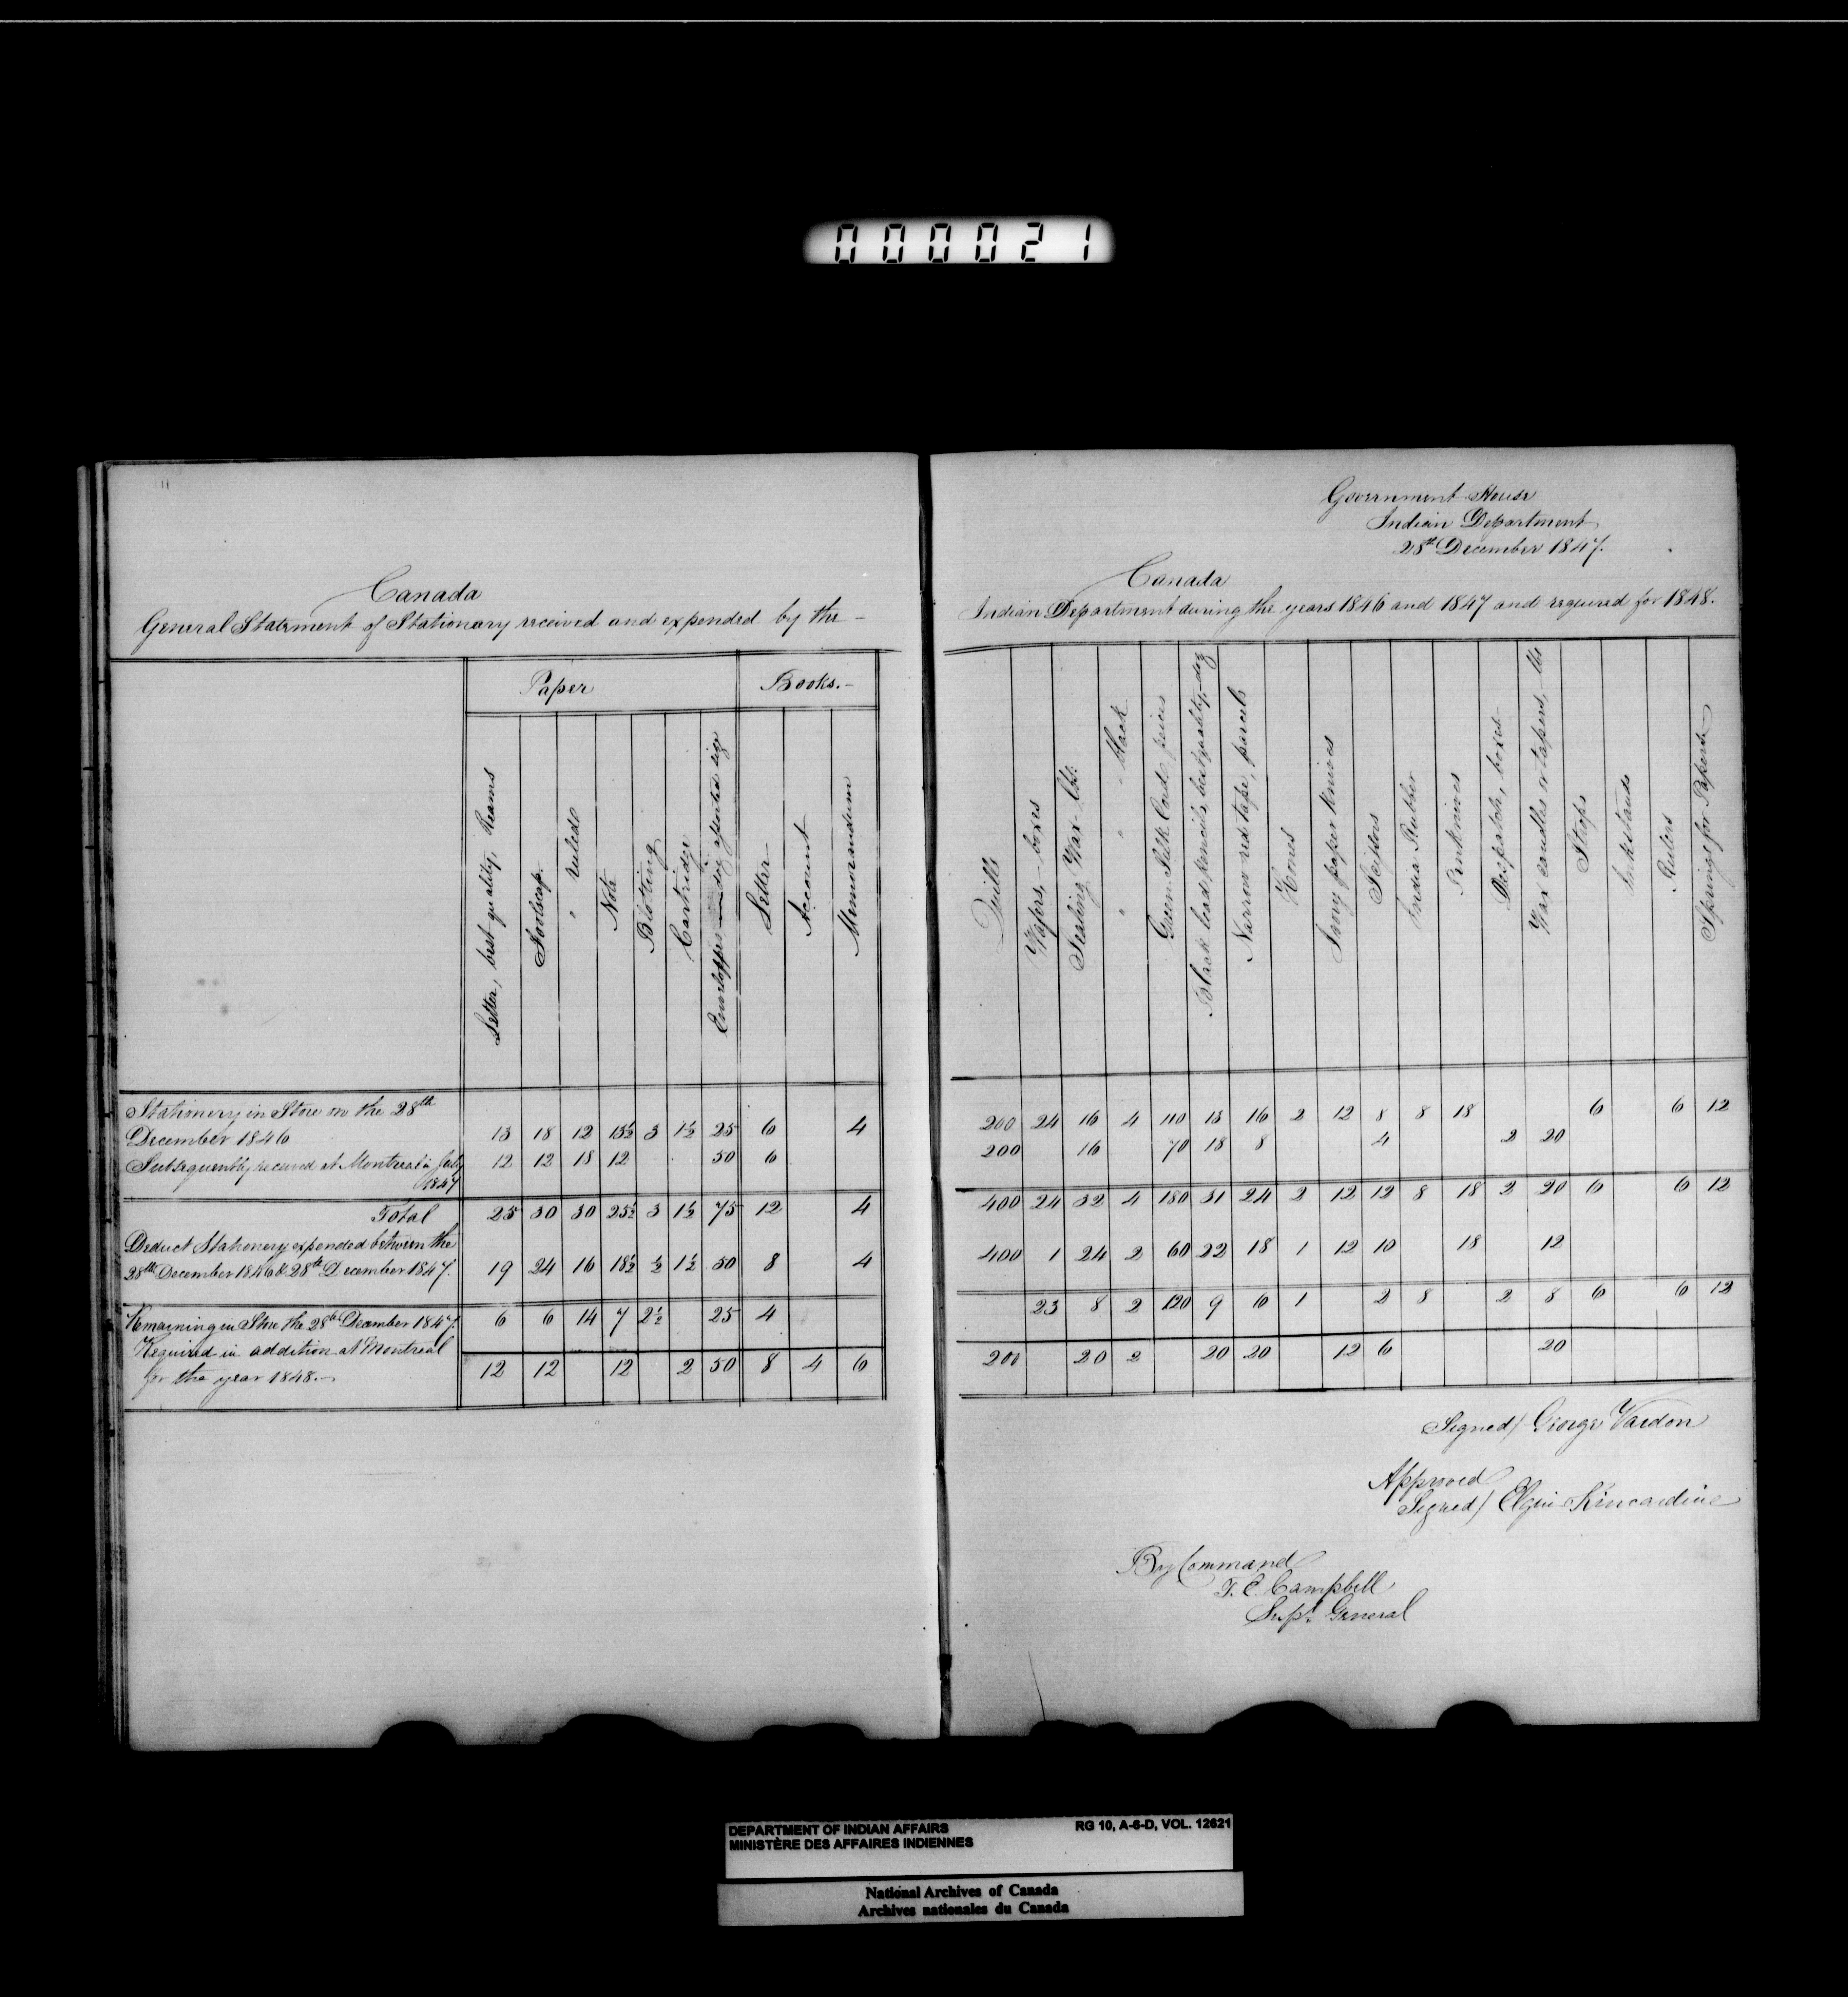 000021
11
Canada
General Statement of Stationery received and expended by the -
Paper Books. -
Letter, best quality, Reams
Foolscap.
" ruled
Note
Blotting
Cartridge
Envelopes assorted size
Letter
Account
Memorandum
Stationery in Store on the 28th
December 1846 13 18 12 13½ 3 1½ 25 6 4
Subsequently received at Montreal in July 12 12 18 12 50 6
1847
Total 25 30 30 25½ 3 1½ 75 12 4
Deduct Stationery expended between the
28th December 1846 & 28th December 1847. 19 24 16 18½ ½ 1½ 50 8 4
Remaining in Store the 28th December 1847. 6 6 14 7 2½ 25 4
Required in addition at Montreal
for the year 1848. - 12 12 12 2 50 8 4 6
Government House
Indian Department
28th December 1847.
Canada
Indian Department during the years 1846 and 1847 and required for 1848.
Quills
Wafers, - boxes
Sealing Wax - lbs.
" " - black
Green Silk Cord, peices
Black lead pencils, best quality, - doz
Narrow red tape, parcels
Hones
Ivory paper knives
Scissors
India Rubber
Penknives
Despatch, boxes -
Wax candles or tapers, - lbs
Strops
Inkstands
Rulers
Springs for Papers -
200 24 16 4 110 13 16 2 12 8 8 18 6 6 12
200 16 70 18 8 4 2 20
400 24 32 4 180 31 24 2 12 12 8 18 2 20 6 6 12
400 1 24 2 60 22 18 1 12 10 18 12
23 8 2 120 9 6 1 2 8 2 8 6 6 12
200 20 2 20 20 12 6 20
Signed/ George Vardon
Approved
Signed/ Elgin & Kincardine
By Command
T. E. Campbell
Supt. General
DEPARTMENT OF INDIAN AFFAIRS RG 10, A-6-D, VOL. 12621
MINISTÈRE DES AFFAIRES INDIENNES
National Archives of Canada
Archives nationales du Canada